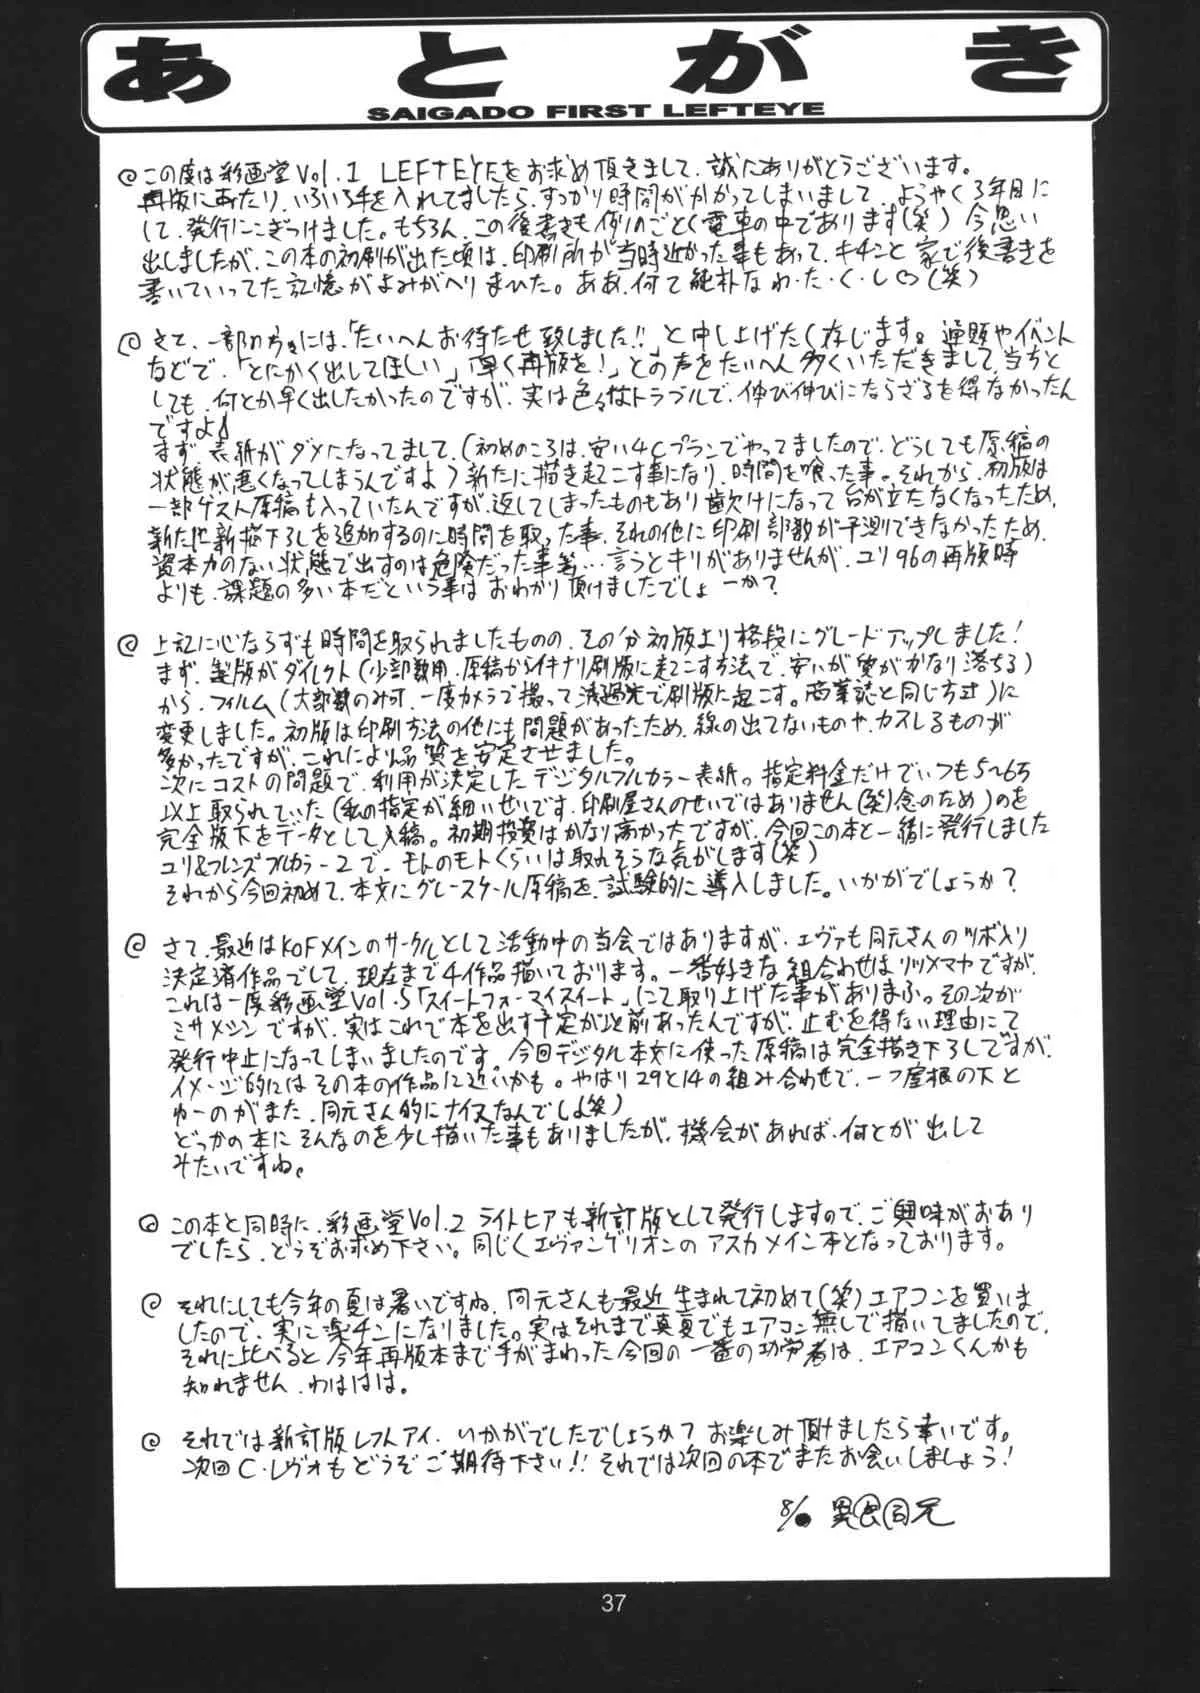 あとがき
SAIGADO FIRST LEFTEYE
@この度は彩画堂Vol.1 LEFTEYEをお求め頂きまして、誠にありがとうございます。
再版にあたり、いろいろ手を入れてましたら、すっかり時間がかかってしまいまして、ようやく3年目に
して、発行にこぎつけました。もちろん、この後書きも例のごとく電車の中であります(笑) 今思い
出しましたが、この本の初刷が出た頃は、印刷所が当時近かった事もあって、キチンと家で後書きを
書いていってた記憶がよみがえりまひた。ああ、何て純朴なわ・た・く・し♡(笑)
@さて、一部の方々には、「たいへんお待たせ致しました!!」と申し上げたく存じます。通販やイベント
などで、「とにかく出してほしい」「早く再版を!」との声をたいへん多くいただきまして、当方と
しても、何とか早く出したかったのですが、実は色々なトラブルで、伸び伸びにならざるを得なかったん
ですよ
まず、表紙がダメになってまして、(初めのころは、安い4Cプランでやってましたので、どうしても原稿の
状態が悪くなってしまうんですよ)新たに描き起こす事になり、時間を喰った事。それから、初版は
一部ゲスト原稿も入っていたんですが、返してしまったものもあり歯欠けになって台が立たなくなったため、
新たに新描下ろしを追加するのに時間を取った事、その他に印刷部数が予測できなかったため、
資本力のない状態で出すのは危険だった事等…言うとキリがありませんが、ユリ96の再版時
よりも、課題の多い本だという事はおわかり頂けましたでしょーか?
@上記に心ならずも時間を取られましたものの、その分初版より格段にグレードアップしました!
まず、製版がダイレクト(少部数用、原稿からイキナリ刷版に起こす方法で、安いが質がかなり落ちる)
から、フィルム(大部数のみ可、一度カメラで撮って濾過先で刷版に起こす。商業誌と同じ方式)に
変更しました。初版は印刷方法の他にも問題があったため、線の出てないものや、カスレるものが
多かったですが、これにより品質を安定させました。
次にコストの問題で、利用が決定したデジタルフルカラー表紙。指定料金だけでいつも5~6万
以上取られていた(私の指定が細いせいです、印刷屋さんのせいではありません(笑)念のため)のを
完全版下をデータとして入稿。初期投資はかなり高かったですが、今回この本と一緒に発行しました
ユリ&フレンズフルカラー2で、モトのモトくらいは取れそうな気がします(笑)
それから今回初めて、本文にグレースケール原稿を、試験的に導入しました。いかがでしょうか?
@さて、最近はKOFメインのサークルとして活動中の当会ではありますが、エヴァも同元さんのツボ入り
決定済作品でして、現在まで4作品描いております。一番好きな組合わせはリツ×マヤですが、
これは一度彩画堂Vol.5「スイートフォーマイスイート」にて取り上げた事がありまふ。その次が
ミサ×シンですが、実はこれで本を出す予定が以前あったんですが、止むを得ない理由にて
発行中止になってしまいましたのです。今回デジタル本文に使った原稿は完全描き下ろしですが、
イメージ的にはその本の作品に近いかも。やはり29と14の組み合わせで、一つ屋根の下と
ゆーのがまた、同元さん的にナイスなんでしょ(笑)
どっかの本にそんなのを少し描いた事もありましたが、機会があれば、何とか出して
みたいですね。
@この本と同時に、彩画堂Vol.2 ライトヒアも新訂版として発行しますので、ご興味がおあり
でしたら、どうぞお求め下さい。同じくエヴァンゲリオンのアスカメイン本となっております。
@それにしても今年の夏は暑いですね、同元さんも最近生まれて初めて(笑)エアコンを買いま
したので、実に楽チンになりました。実はそれまで真夏でもエアコン無しで描いてましたので、
それに比べると今年再版本まで手がまわった今回の一番の功労者は、エアコンくんかも
知れません、わははは。
@それでは新訂版レフトアイ、いかがでしたでしょうか?お楽しみ頂けましたら幸いです。
次回C・レヴォもどうぞご期待下さい!!それでは次回の本でまたお会いしましょう!
37